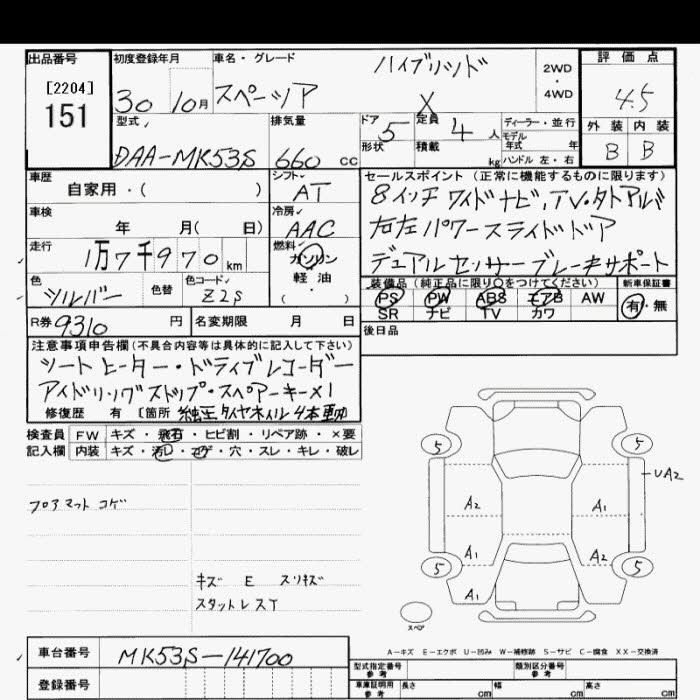 出品番号
[2204]
151
初度登録年月
30 10月
車名・グレード
スペーシア
ハイブリッド
X
2WD
・
4WD
評価点
4.5
外装 内装
B B
型式
DAA-MK53S
排気量
660 cc
ドア
5
定員
4 人
形状
積載
kg
ディーラー・並行
モデル
年式 年
ハンドル 左・右
車歴
自家用・( )
シフト
AT
車検
年 月( 日)
冷房
AAC
走行
1万7千970 km
燃料
ガソリン
軽油
( ・ )
色
シルバー
色替
色コード
Z2S
セールスポイント (正常に機能するものに限ります)
8インチワイドナビ,TV・タトアルバ
右左パワースライドドア
デュアルセンサーブレーキサポート
装備品 (純正品に限り○をつけてください)
PS PW ABS エアB AW
SR ナビ TV カワ
新車保証書
有・無
R券 9310 円
名変期限 月 日
後日品
注意事項申告欄(不具合内容等は具体的に記入して下さい)
シートヒーター・ドライブレコーダー
アイドリングストップ・スペアーキー×1
修復歴 有 [箇所 純正タイヤホイル4本
検査員 FW キズ・飛石・ヒビ割・リペア跡・×要
記入欄 内装 キズ・汚レ・コゲ・穴・スレ・キレ・破レ
フロアマット コゲ
キズ E スリキズ
スタットレスT
5 5
UA2
A2 A1
A1 A2
5 5
A1 A1
スペア
A-キズ E-エクボ U-凹み W-補修跡 S-サビ C-腐食 XX-交換済
車台番号
MK53S-141700
登録番号
型式指定番号
参考
類別区分番号
参考
車庫証明用
参考
長さ cm 幅 cm 高さ cm